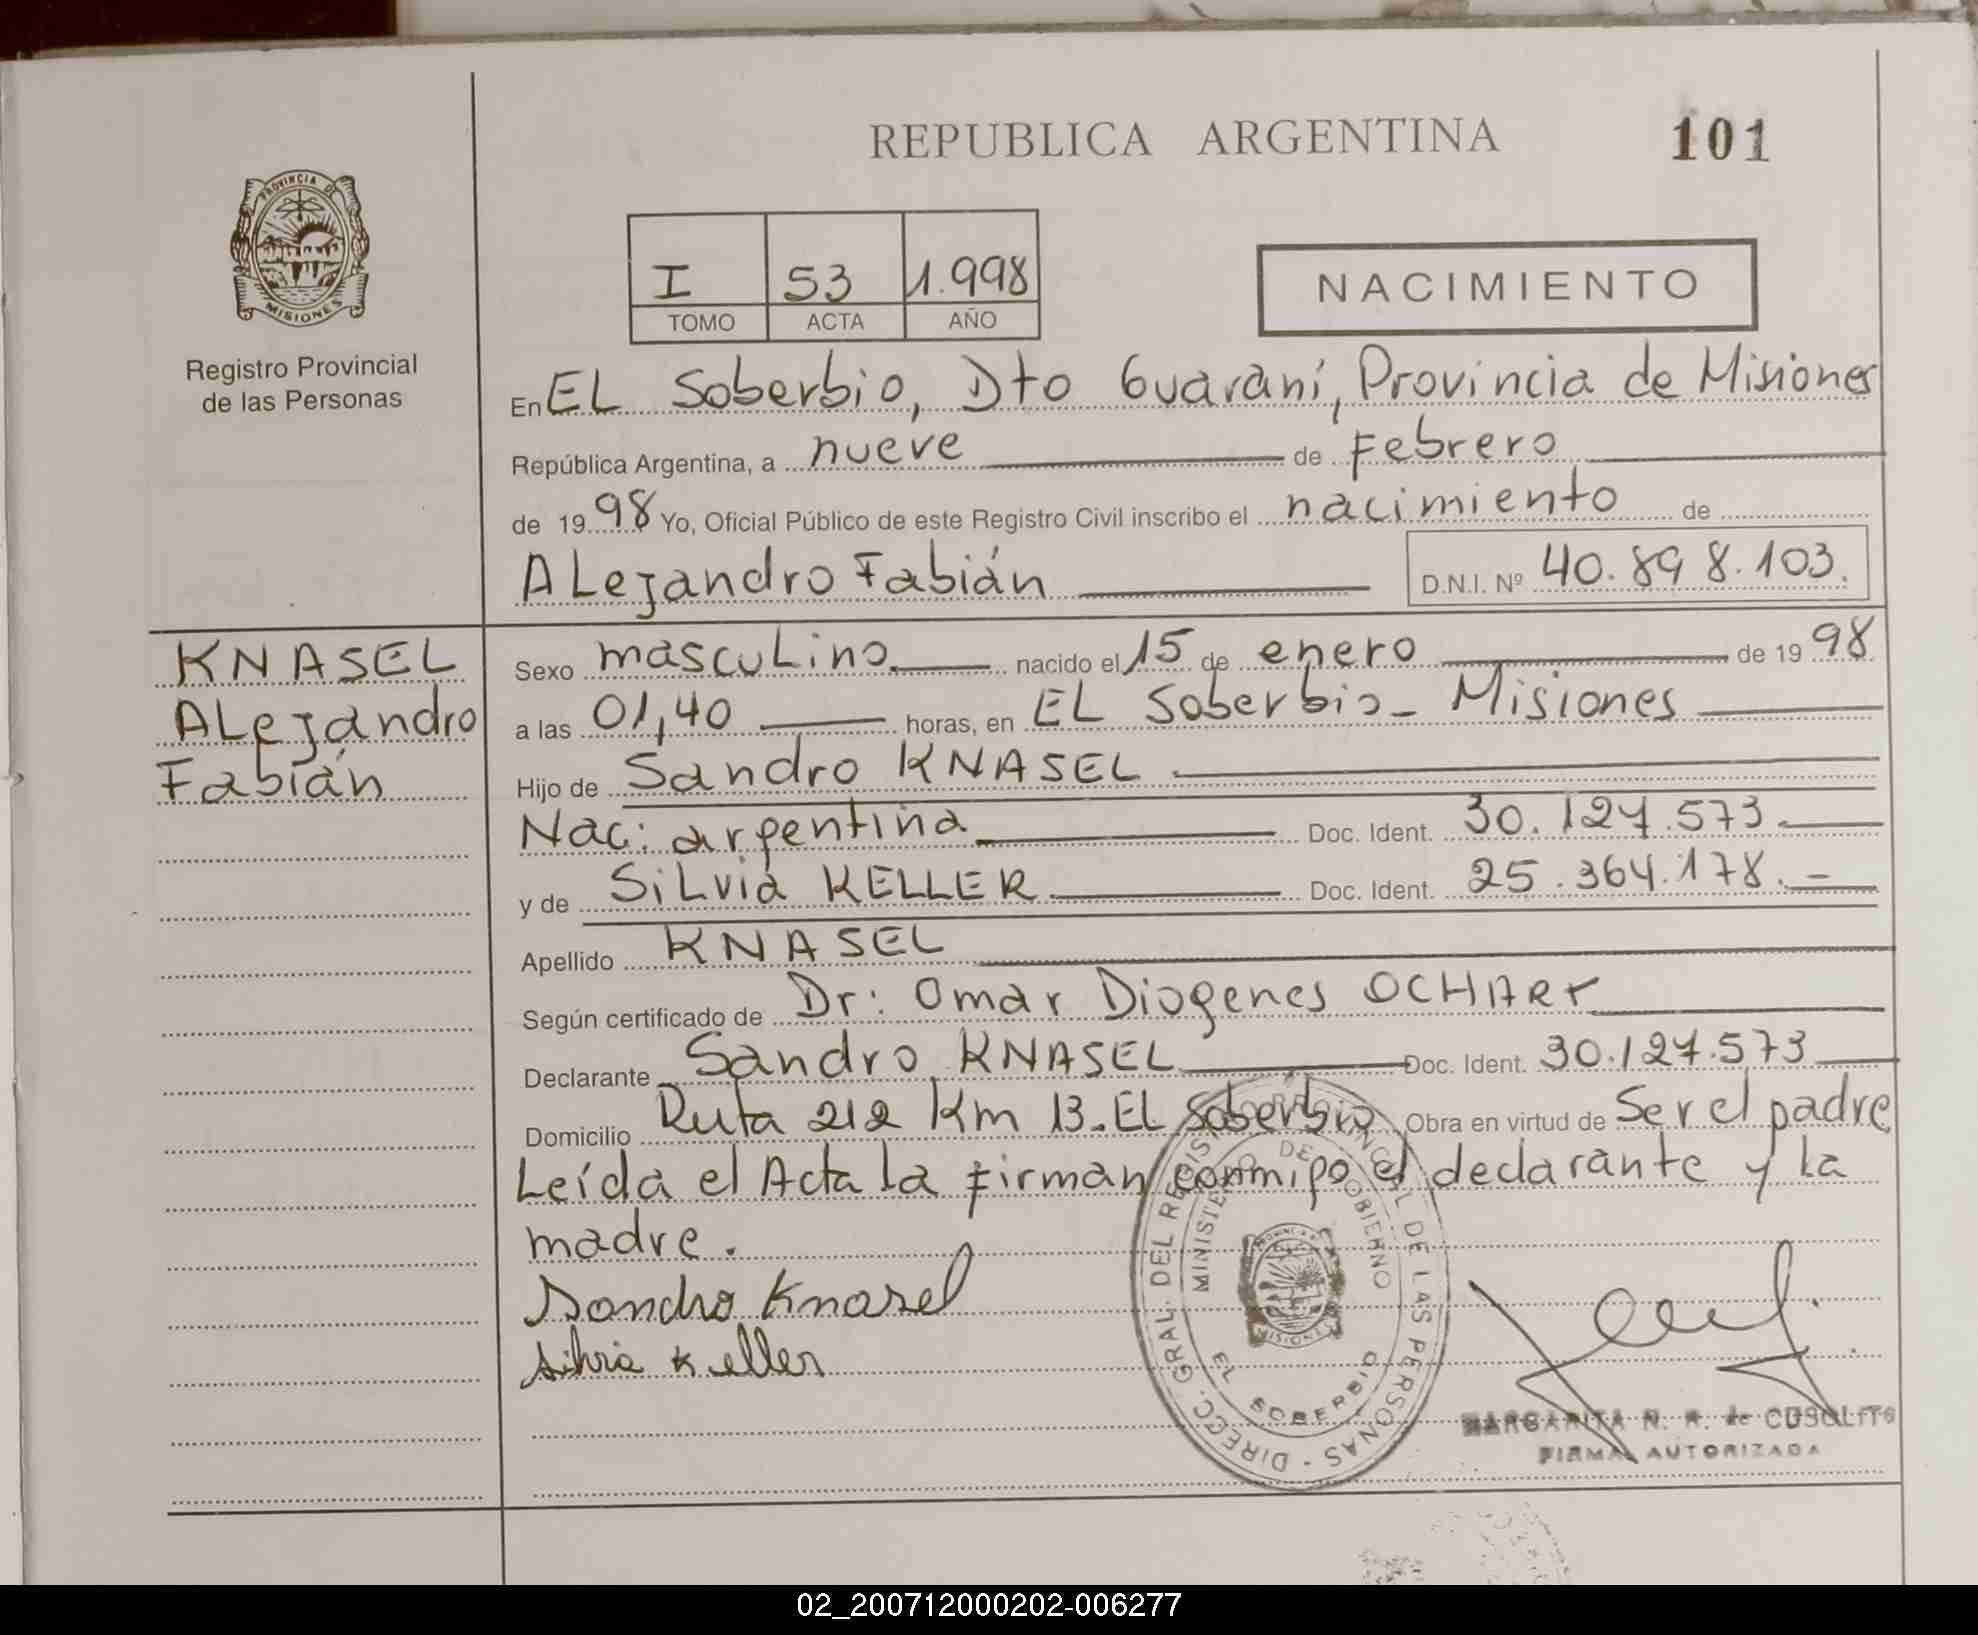 REPUBLICA ARGENTINA
101
PROVINCIA DE
MISIONES
Registro Provincial
de las Personas
I 53 1.998
TOMO ACTA AÑO
NACIMIENTO
En EL Soberbio, Dto Guaraní, Provincia de Misiones
República Argentina, a nueve de Febrero
de 1998 Yo, Oficial Público de este Registro Civil inscribo el nacimiento de
ALejandro Fabián D.N.I. Nº 40.898.103.
KNASEL
ALejandro
Fabián
Sexo mascuLino nacido el 15 de enero de 1998
a las 01,40 horas, en EL Soberbio - Misiones
Hijo de Sandro KNASEL
Nac: argentina Doc. Ident. 30.127.573.
y de SiLvia KELLER Doc. Ident. 25.364.178.-
Apellido KNASEL
Según certificado de Dr: Omar Diogenes OCHART
Declarante Sandro KNASEL Doc. Ident. 30.127.573
Domicilio Ruta 212 Km 13. EL Soberbio Obra en virtud de Ser el padre
Leída el Acta la firman conmigo el declarante y La
madre.
Sandro Knasel
Silvia Keller
DIRECC. GRAL. DEL REGISTRO PROVINCIAL DE LAS PERSONAS -
MINISTERIO DE GOBIERNO
MISIONES
EL SOBERBIO
MARGARITA R. de
FIRMA AUTORIZADA
02_200712000202-006277